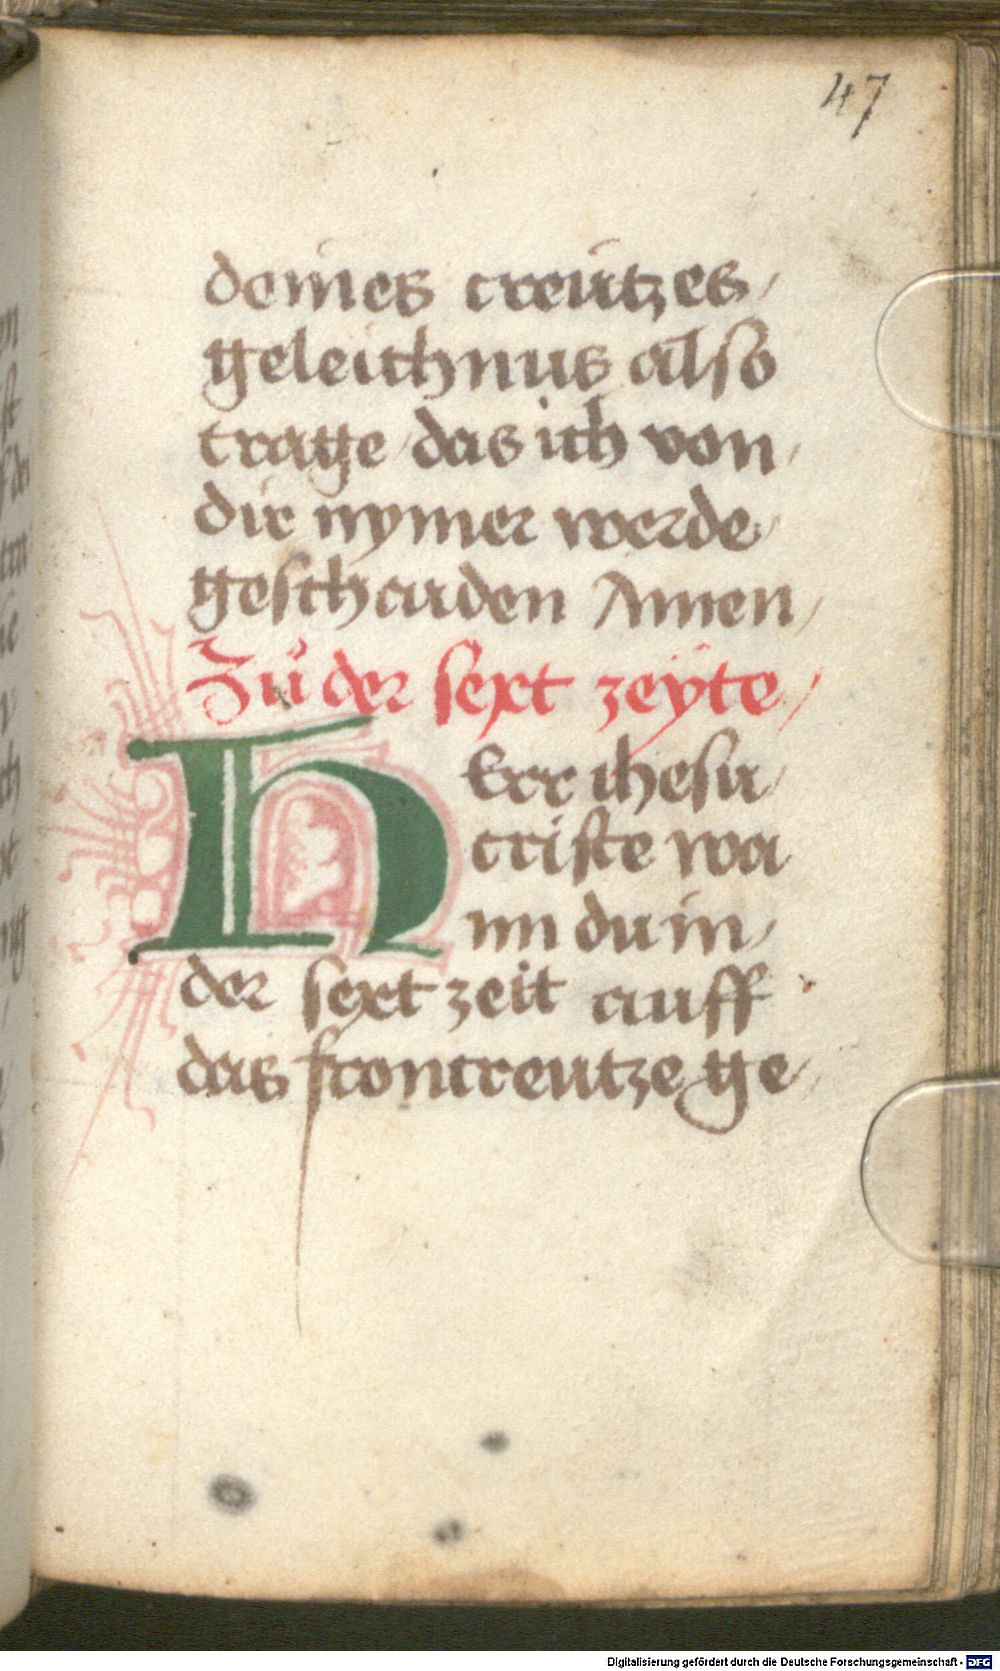 47
deines creutzes /
geleichnus also
trage / das ich von /
dir nymer werde /
geschaiden Amen /
Zů der sext zeyte /
HErr ihesu /
criste wa
nn du in /
der sext zeit auff
das froncreutze ge /
Digitalisierung gefördert durch die Deutsche Forschungsgemeinschaft - DFG